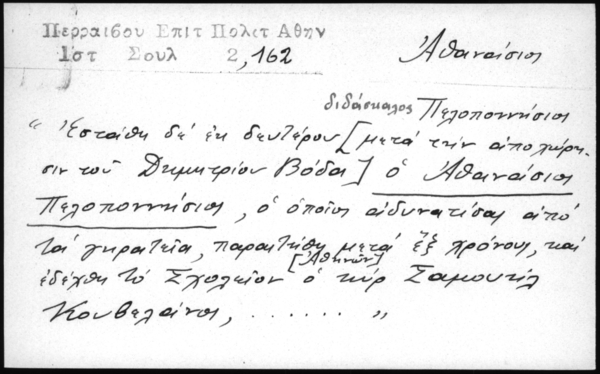 Περραιβου Επιτ Πολετ Αθην
Ιστ Σουλ 2,162
Ἀθανάσιος
διδάσκαλος Πελοποννήσιος
"Ἐστάθη δέ ἐκ δευτέρου [μετά τήν ἀποχώρη-
σιν τοῦ Δημητρίου Βόδα] ὁ Ἀθανάσιος
Πελοποννήσιος, ὁ ὁποῖος ἀδυνατίσας ἀπό
τά γηρατεῖα, παραιτήθη μετά ἕξ χρόνους, καί
ἐδέχθη τό Σχολεῖον [Ἀθηνῶν] ὁ κύρ Σαμουήλ
Κουβελάνος, ...... "